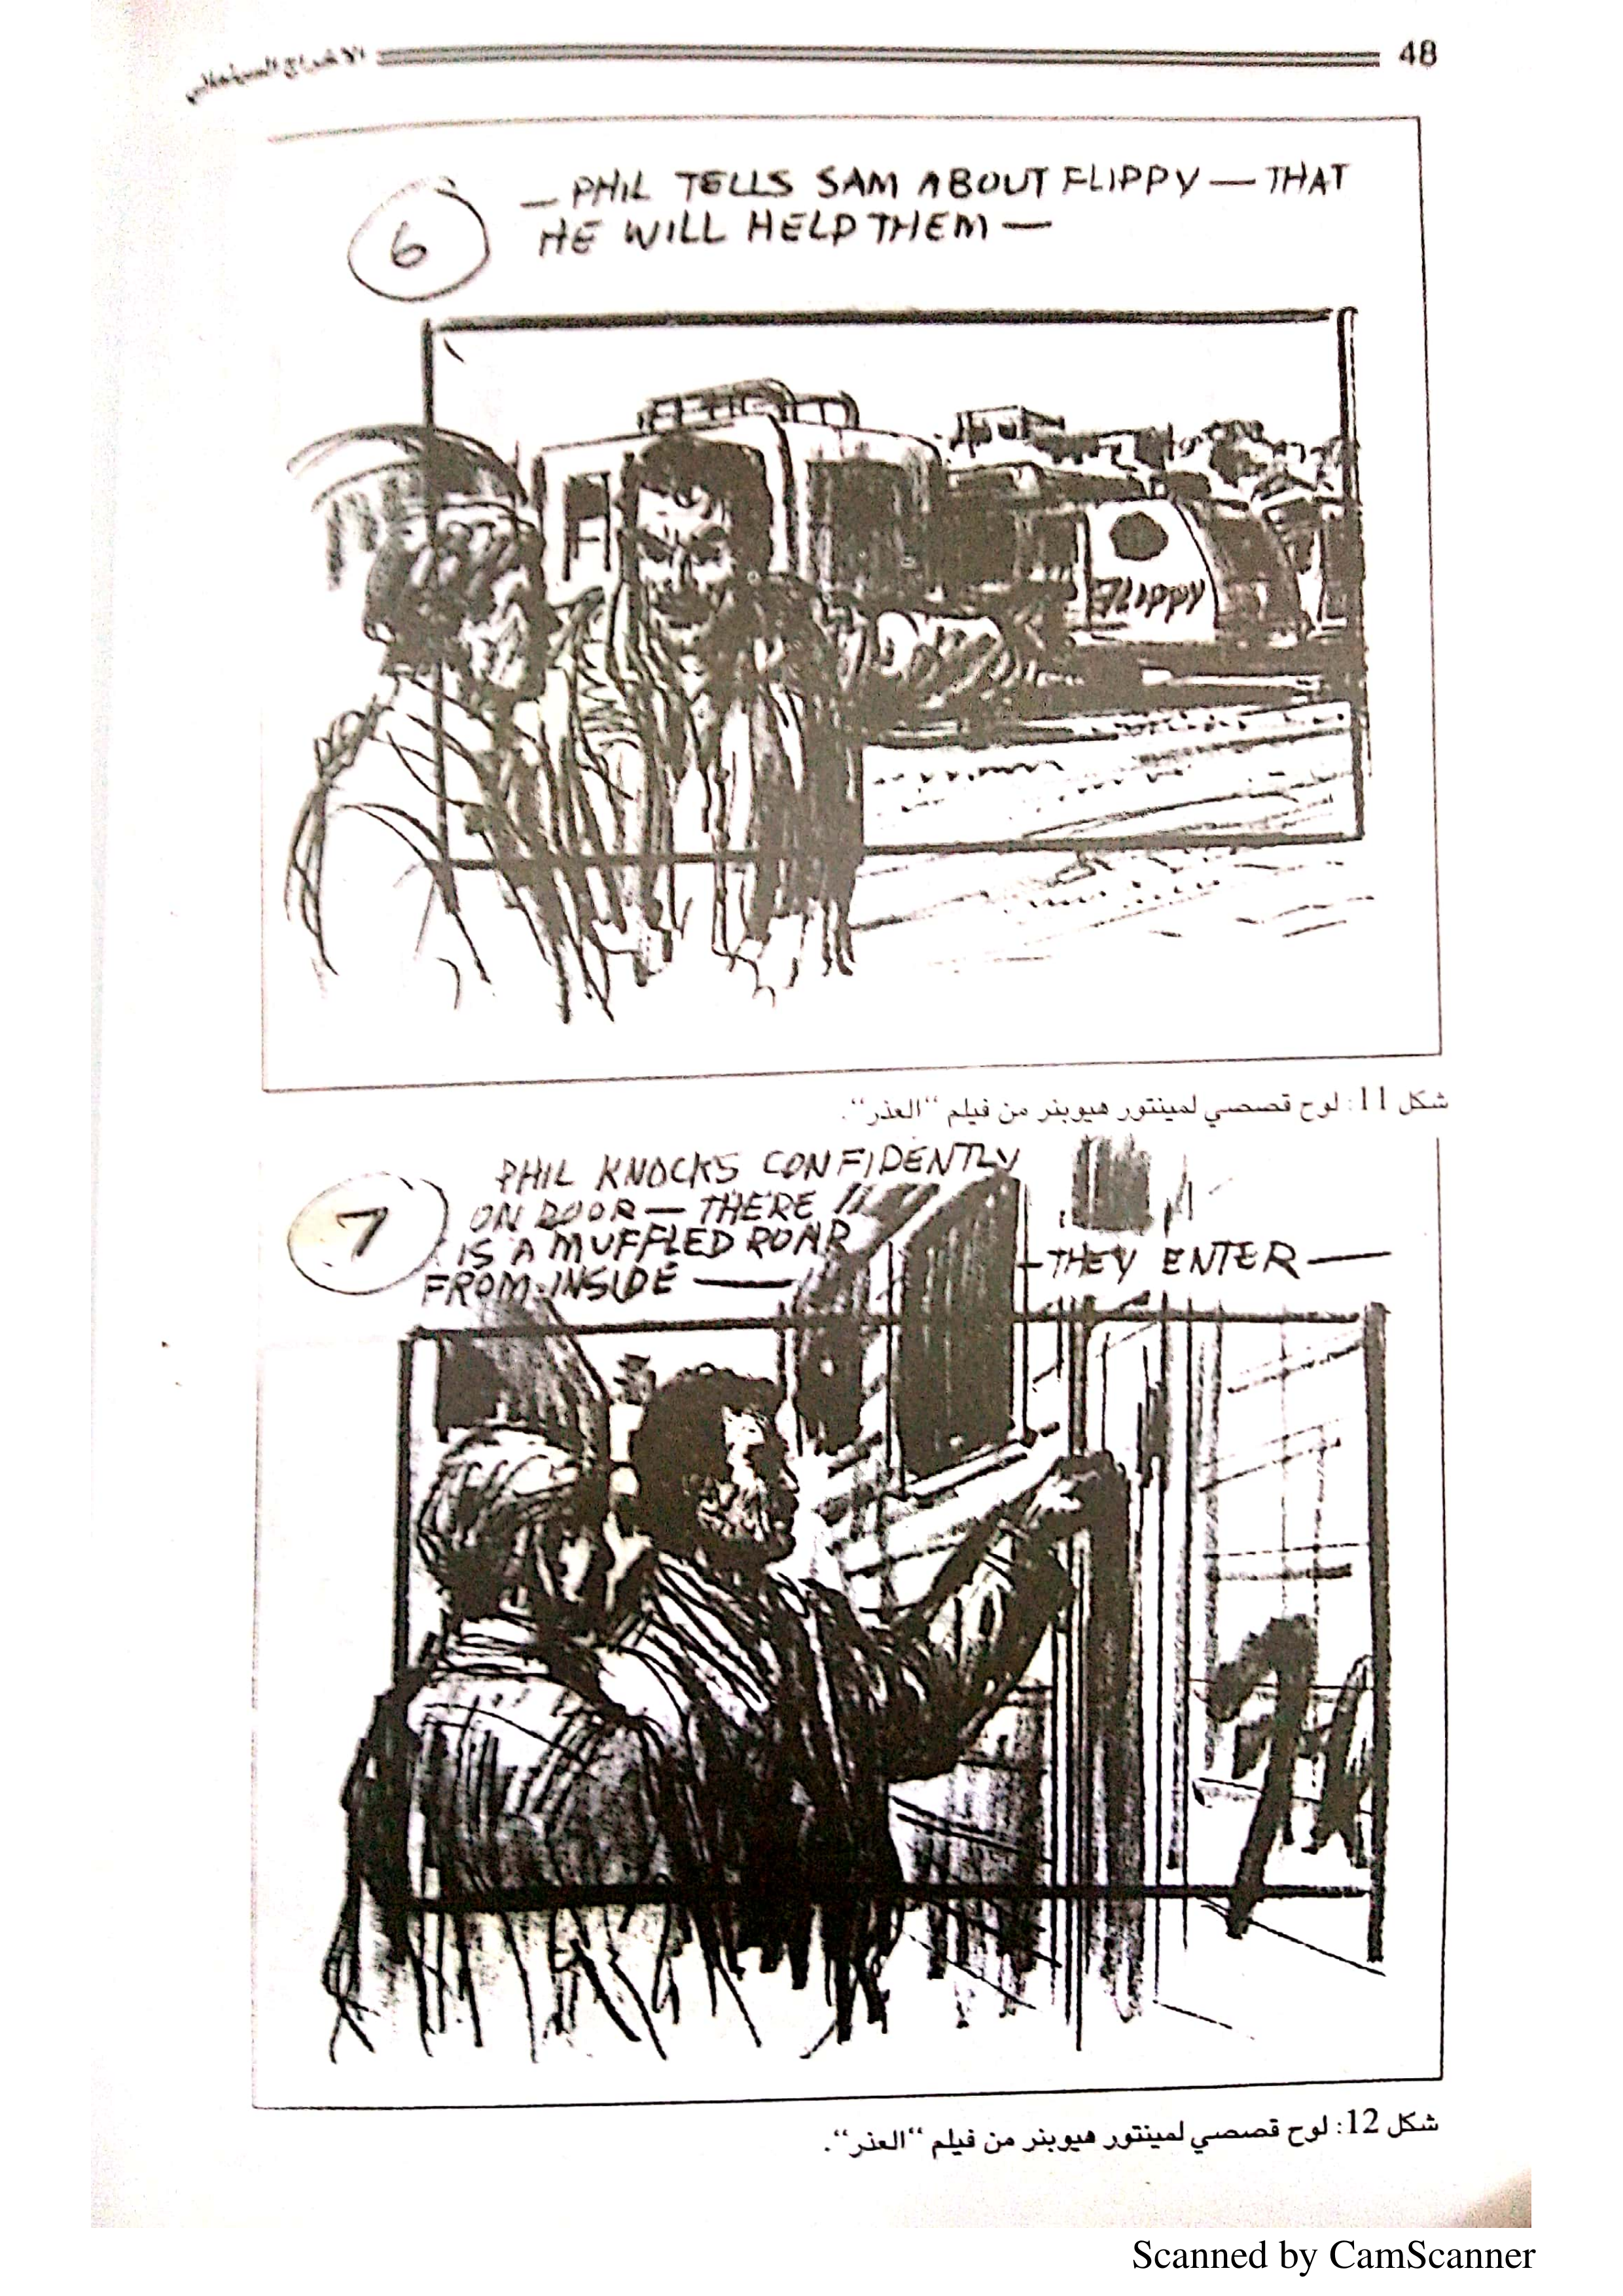 48
الاخراج السينمائي
6
— PHIL TELLS SAM ABOUT FLIPPY — THAT
HE WILL HELP THEM —
FLIPPY
شكل 11: لوح قصصي لمينتور هيوبنر من فيلم “العذر“.
7
PHIL KNOCKS CONFIDENTLY
ON DOOR — THERE
IS A MUFFLED ROAR
FROM INSIDE —
— THEY ENTER —
شكل 12: لوح قصصي لمينتور هيوبنر من فيلم “العذر“.
Scanned by CamScanner